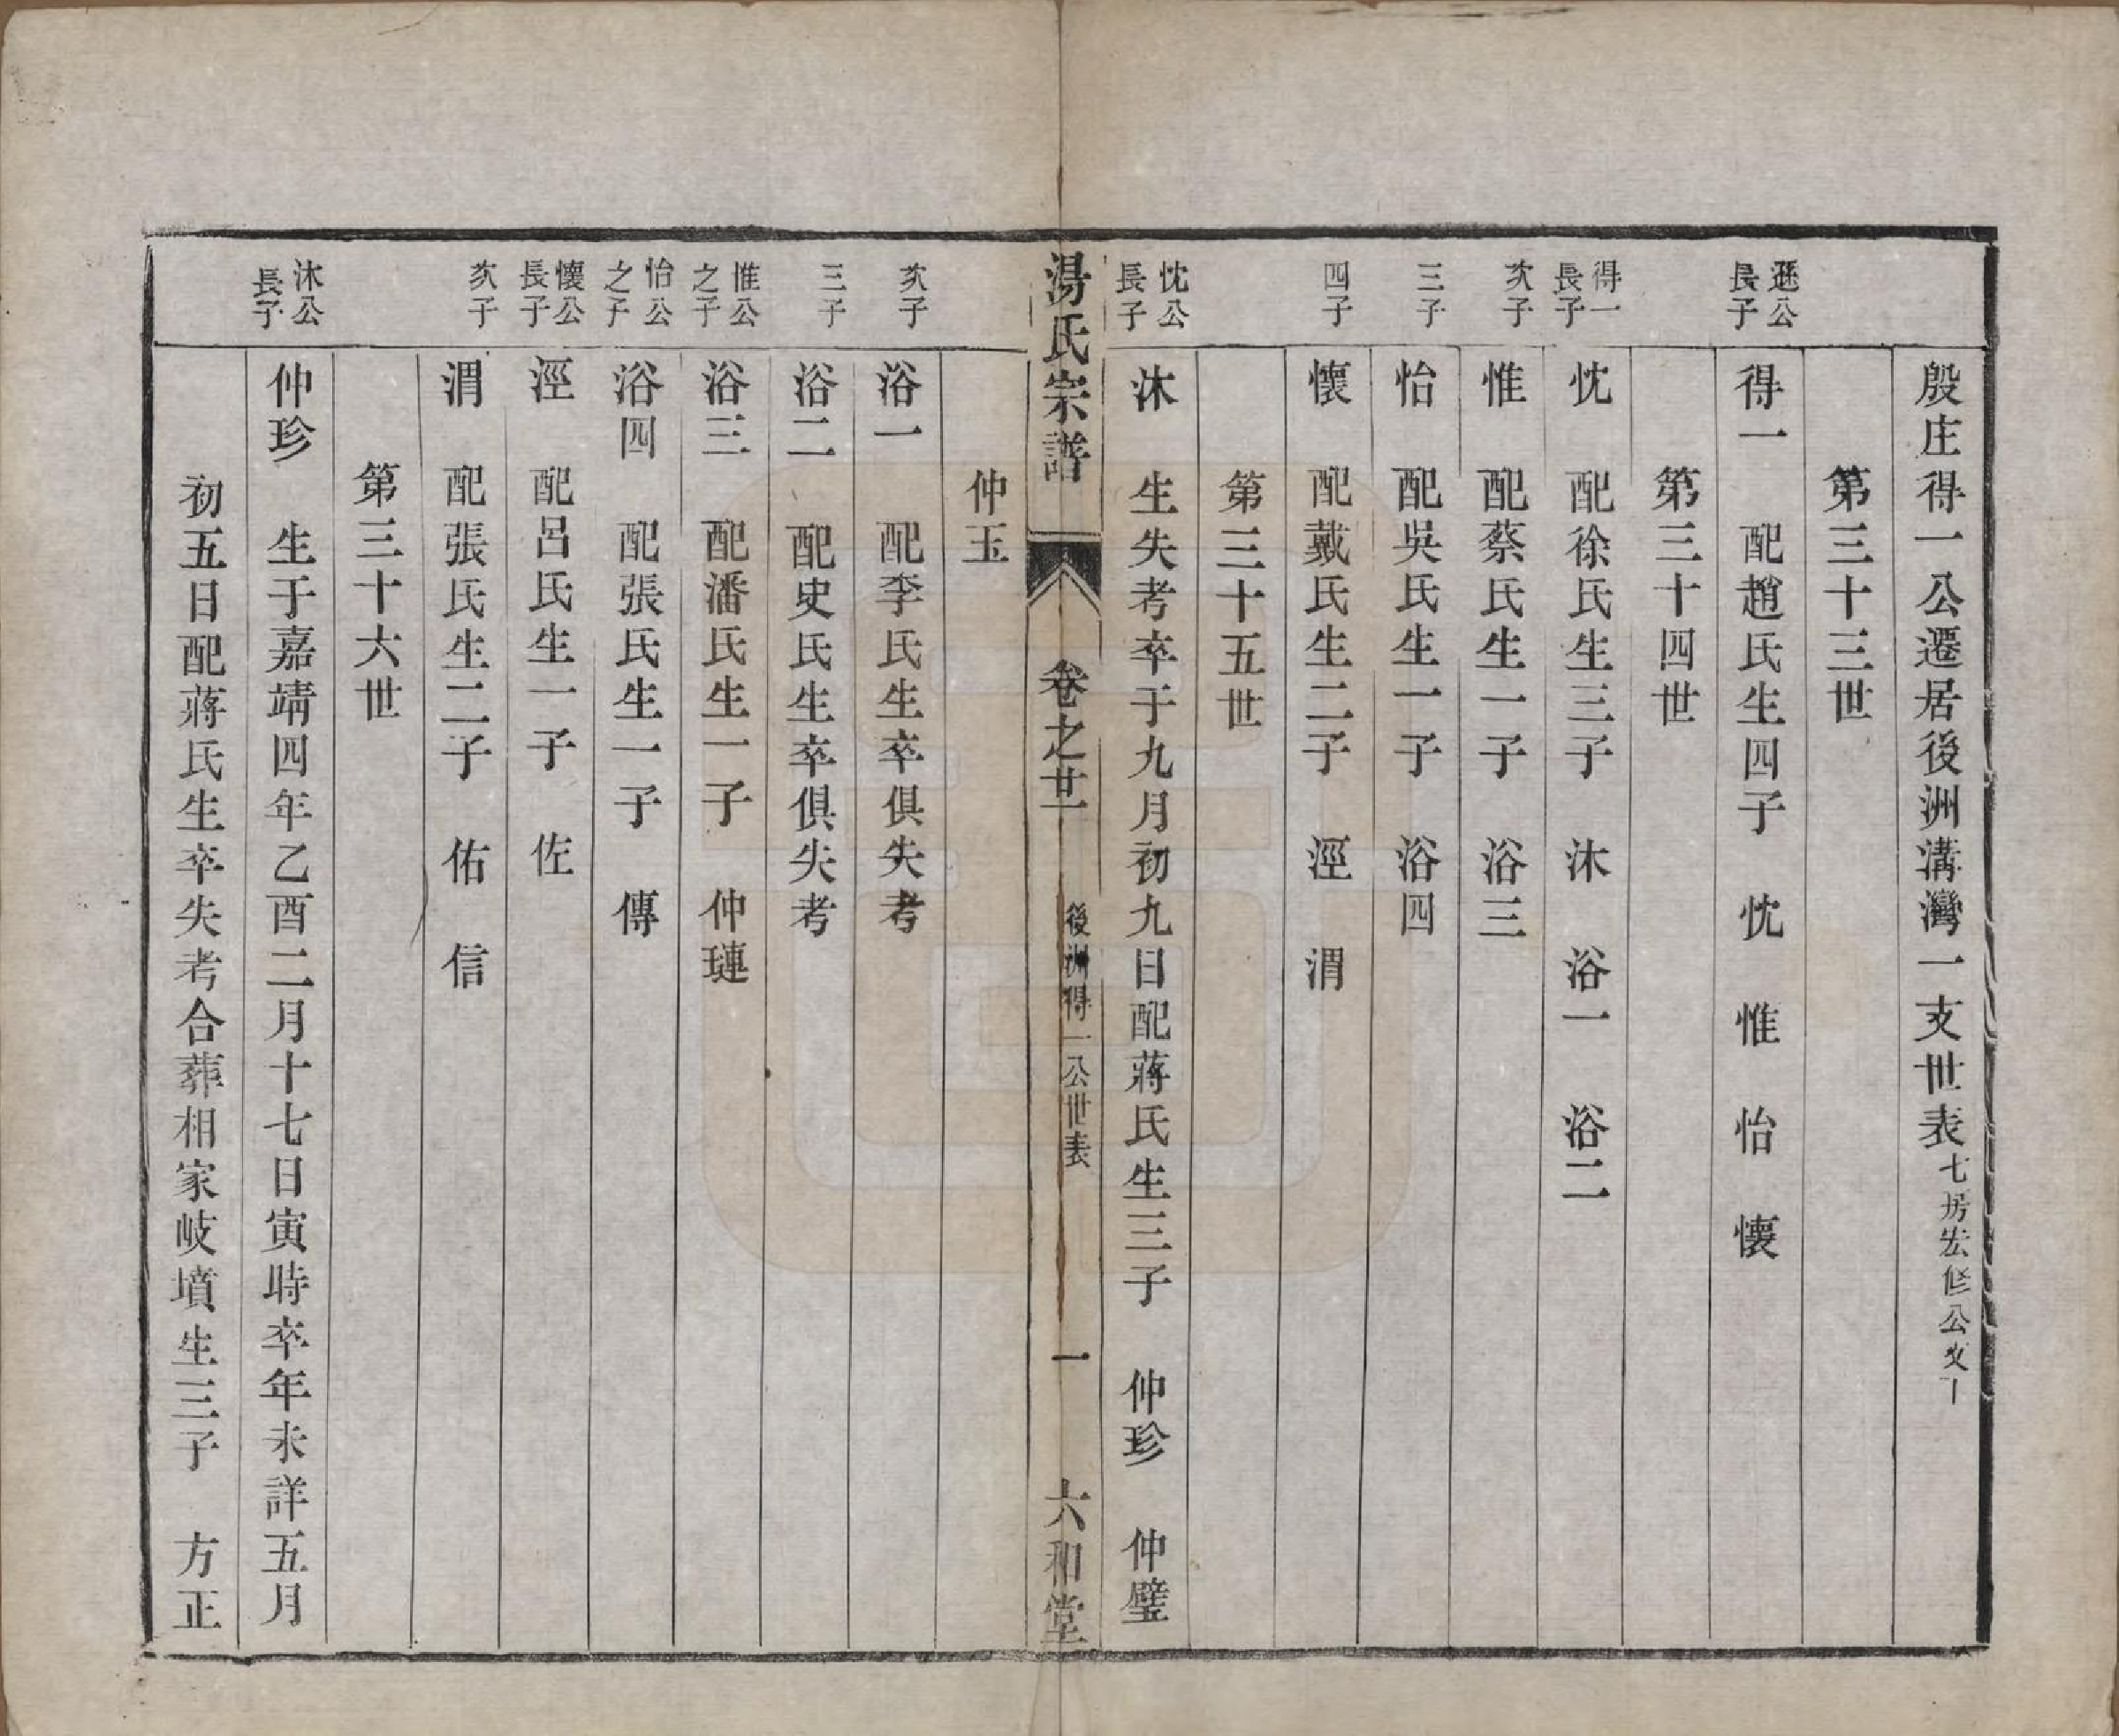 殷庄得一公遷居後洲溝灣一支世表七房宏修公支下
第三十三世
遜公長子
得一 配趙氏生四子 忱 惟 怡 懷
第三十四世
得一長子
忱 配徐氏生三子 沐 浴一 浴二
次子
惟 配蔡氏生一子 浴三
三子
怡 配吳氏生一子 浴四
四子
懷 配戴氏生二子 涇 渭
第三十五世
忱公長子
沐 生失考卒于九月初九日配蔣氏生三子 仲珍 仲璧
湯氏宗譜 卷之廿一 後洲得一公世表 一 六和堂
仲玉
次子
浴一 配李氏生卒俱失考
三子
浴二 配史氏生卒俱失考
惟公之子
浴三 配潘氏生一子 仲璉
怡公之子
浴四 配張氏生一子 傳
懷公長子
涇 配呂氏生一子 佐
次子
渭 配張氏生二子 佑 信
第三十六世
沐公長子
仲珍 生于嘉靖四年乙酉二月十七日寅時卒年未詳五月
初五日配蔣氏生卒失考合葬相家岐墳生三子 方正